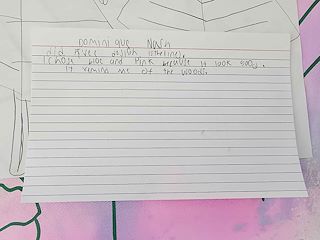 Dominique Nash
did River design (the line).
I chose blue and Pink because it look good.
It remind me of the woods.